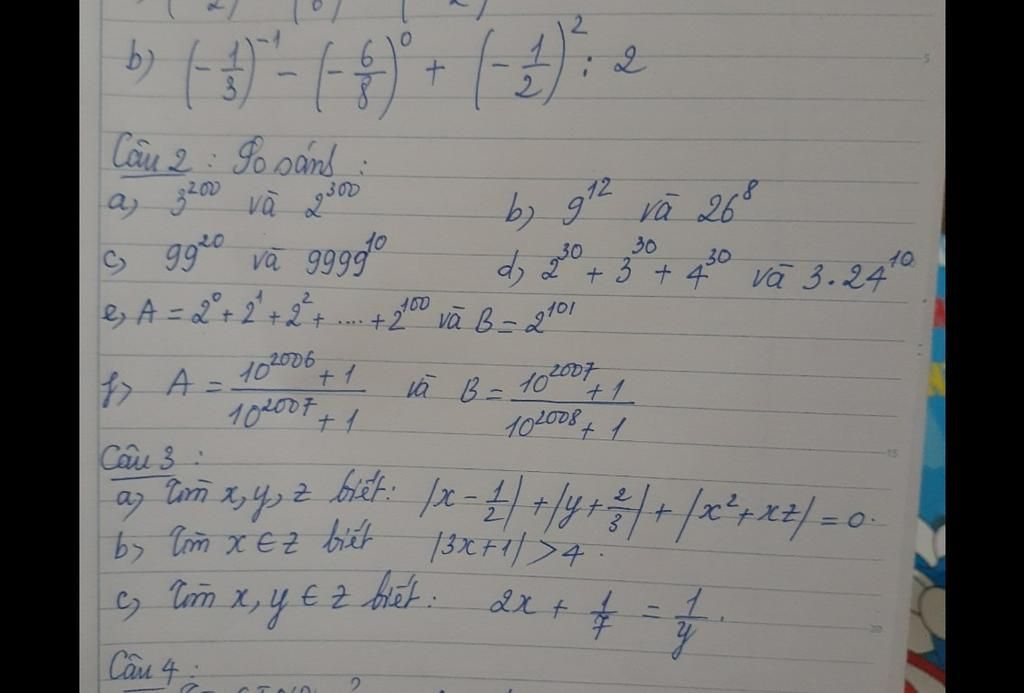 b) (-1/3)^-1 - (-6/8)^0 + (-1/2)^2 : 2
Câu 2 : So sánh :
a, 3^200 và 2^300 b, 9^12 và 26^8
c, 99^20 và 9999^10 d, 2^30 + 3^30 + 4^30 và 3.24^10
e, A = 2^0 + 2^1 + 2^2 + .... + 2^100 và B = 2^101
f, A = (10^2006 + 1)/(10^2007 + 1) và B = (10^2007 + 1)/(10^2008 + 1)
Câu 3 :
a, Tìm x, y, z biết: |x - 1/2| + |y + 2/3| + |x^2 + xz| = 0.
b, Tìm x ∈ z biết |3x+1| > 4.
c, Tìm x, y ∈ z biết: 2x + 1/7 = 1/y.
Câu 4 :